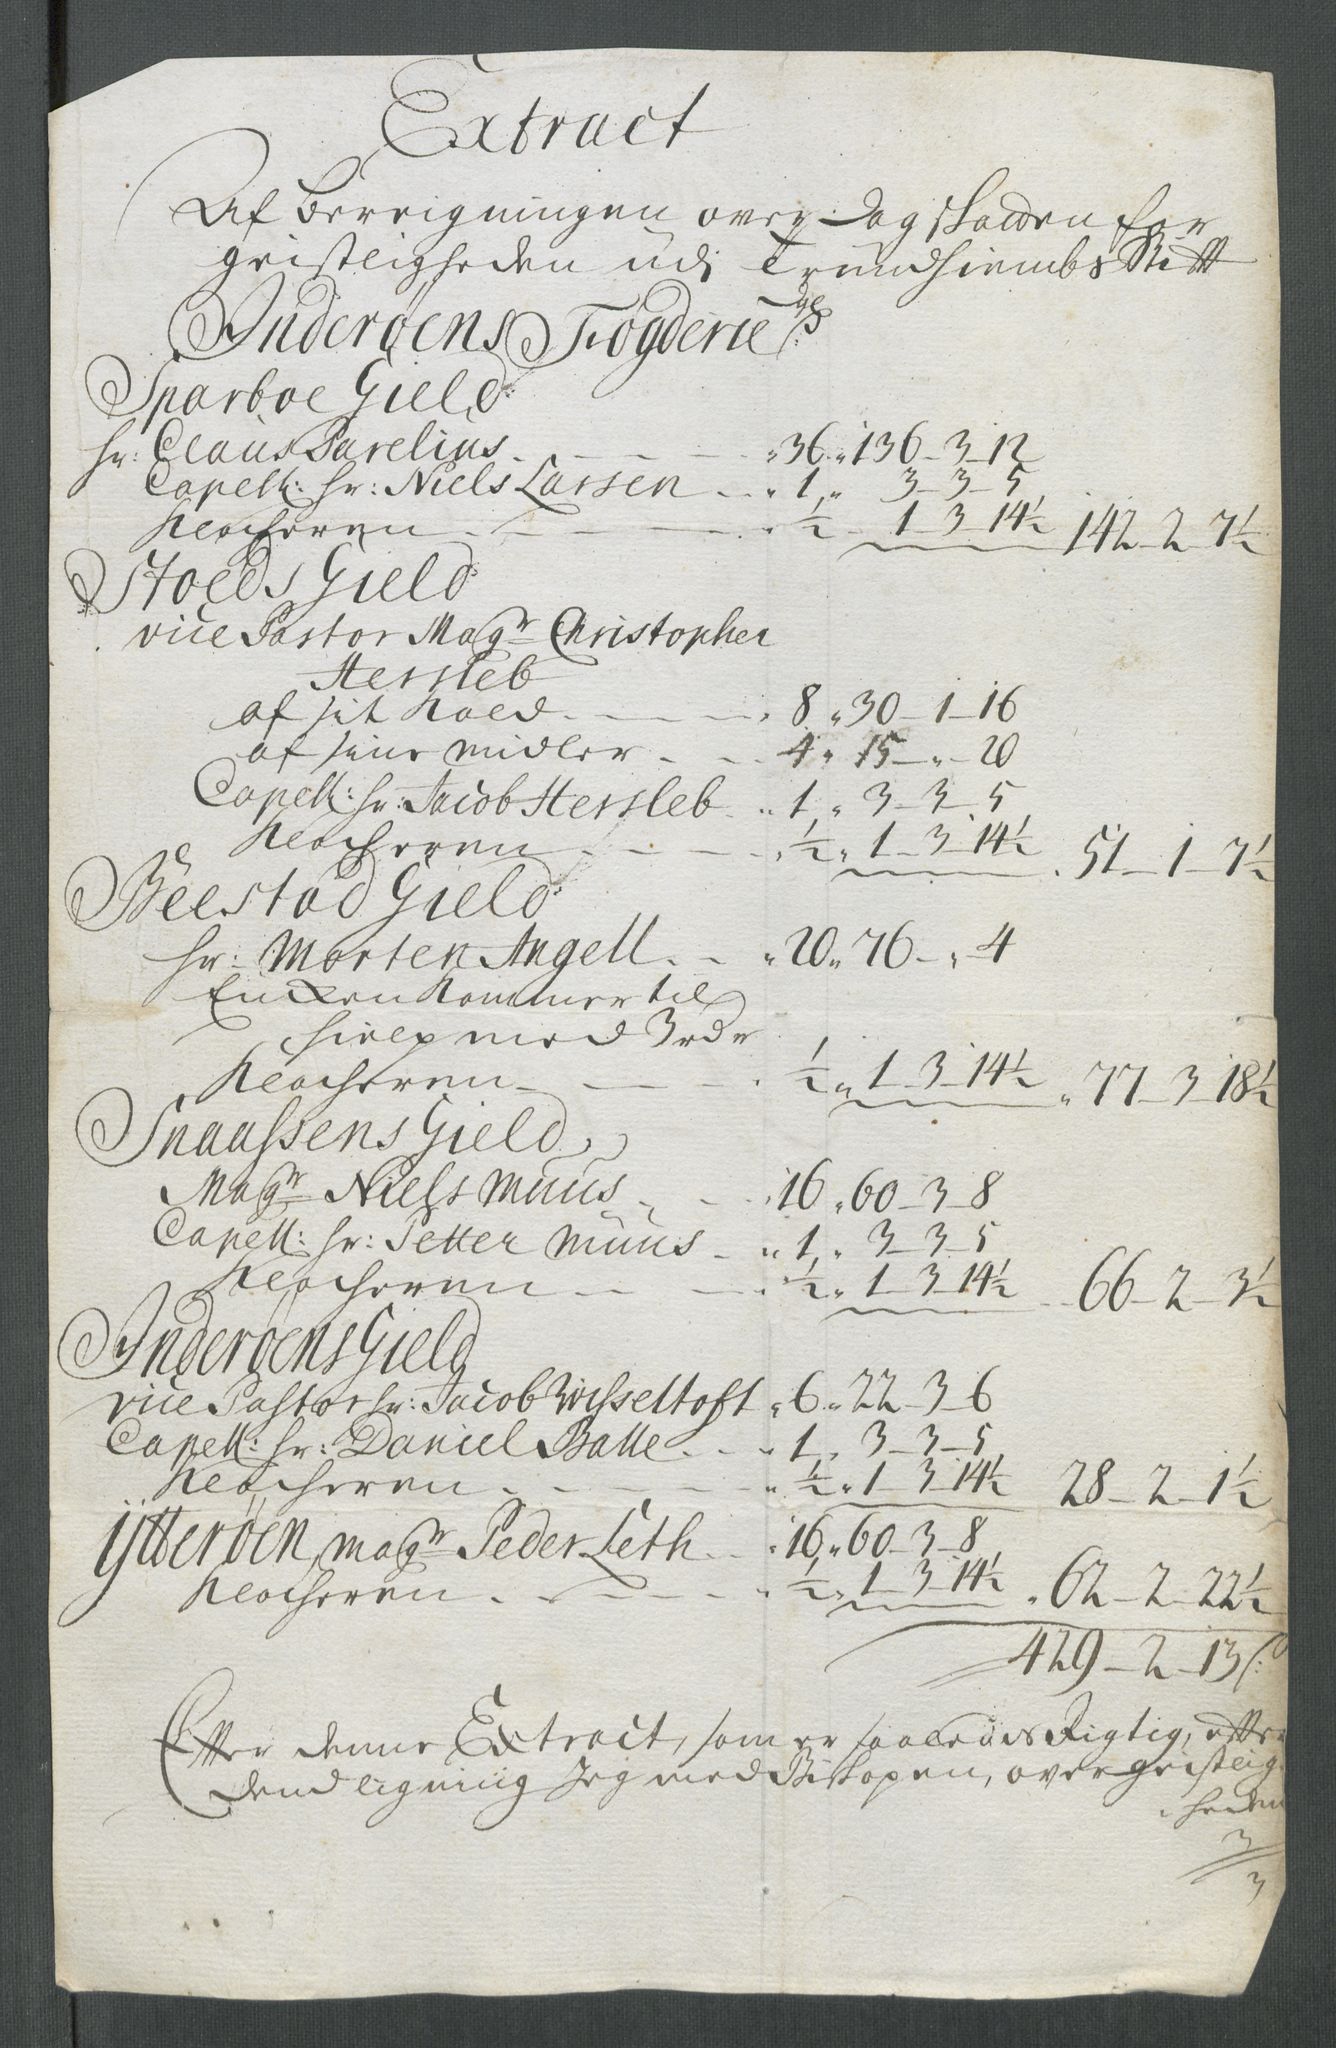 Extract
Af berrigningen over dag skatten for
geistligheden udi Trundhiembs Stift
Inderøens Fogderie
Sparboe Gield
hr: Claus Parelius. „36„ 136_3_12
Capell: hr: Niels Larsen „1„ 3_3_5
Klocheren ½ 1_3_14½ 142_2_7½
Stoeds Gield
vice Pastor Magr Christopher
Hersleb
af sit kald 8„ 30_1_16
af sine midler 4„ 15_„_20
Capell: hr: Jacob Hersleb „1„ 3_3_5
Klocheren ½„ 1_3_14½ 51_1_7½
Beestad Gield
hr: Morten Angell „20„ 76_„_4
Encken kommer til
hielp med 3 rdr
Klocheren ½„ 1_3_14½ „77_3_18½
Snaassens Gield
Magr Niels Muus 16„ 60_3_8
Capell: hr: Petter Muus „1„ 3_3_5
Klocheren ½„ 1_3_14½ 66_2_3½
Inderøens Gield
vice Pastor hr: Jacob Wisseltoft „6„ 22_3_6
Capell: hr: Daniel Balle „1„ 3_3_5
Klocheren „½„ 1_3_14½ 28_2_1½
Ytterøen, magr Peder Leth 16„ 60_3_8
Klocheren „½„ 1_3_14½ „62_2_22½
429_2_13
Efter denne Extract, som er saaledis Rigtig, efter
dend ligning Jeg med Biskopen, over geistlig
heden
3
3